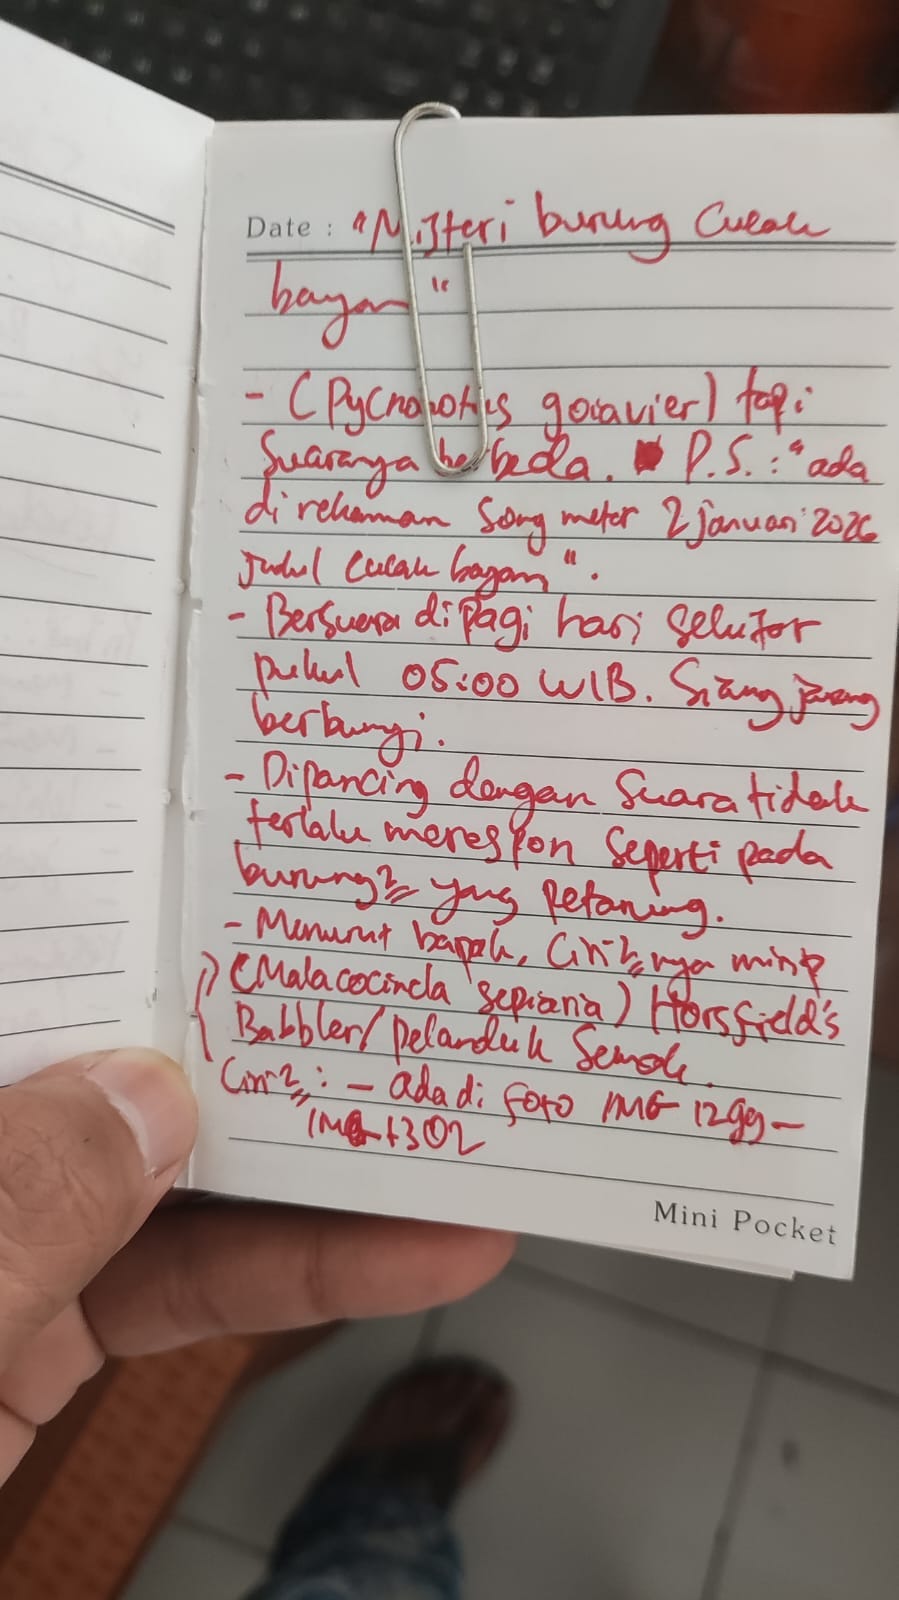 Date : "Misteri burung Cucak
bayam"
- (Pycnonotus goiavier) tapi
Suaranya berbeda. P.S. : "ada
di rekaman Song meter 2 januari 2026
Judul Cucak bayam".
- Bersuara di pagi hari sekitar
pukul 05:00 WIB. Siang jarang
berbunyi.
- Dipancing dengan Suara tidak
terlalu merespon seperti pada
burung2 yang Petarung.
- Menurut bapak, Ciri2nya mirip
(Malacocincla sepiaria) Horsfield's
Babbler/Pelanduk Semak.
Ciri2 : - ada di foto IMG 1299-
IMG 1302
Mini Pocket